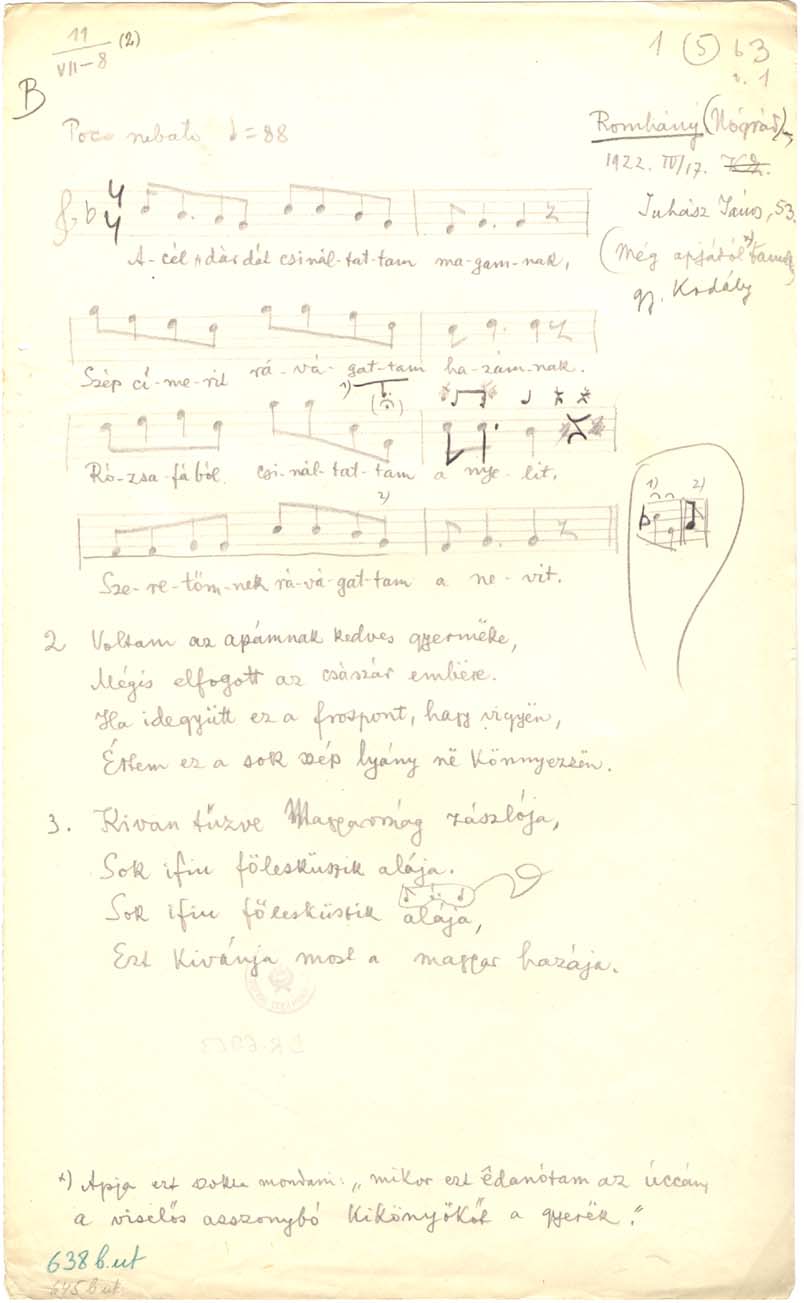 11 (2)
VII-8
1 (5) b 3
v. 1
B
Poco rubato ♩=88
Romhány (Nógrád),
1922. IV/17. K.Z.
Juhász János, 53.
(még apjától x) tanulta)
gy. Kodály
4
4
A-cél dàrdát csinál-tat-tam ma-gam-nak,
Szép cí-me-rit rá-vá-gat-tam ha-zám-nak.
1)
Ró-zsa-fából csi-nál-tat-tam a nye-lit,
2)
1) 2)
Sze-re-tőm-nek rá-vá-gat-tam a ne-vit.
2 Voltam az apámnak kedves gyermëke,
Mégis elfogott az császár embëre.
Ha idegyütt ez a frospont, hagy vigyën,
Értem ez a sok szép lyány në könnyezzën.
3. Kivan tűzve Magyarország zászlója,
Sok ifiu fölesküszik alája.
Sok ifiu fölesküszik alája,
Ezt kivánja most a magyar hazája.
x) Apja ezt szokta mondani: „mikor ezt êdanótam az úccán,
a viselős asszonybó kikönyökőt a gyerëk."
638 b.ut
645 b ut.